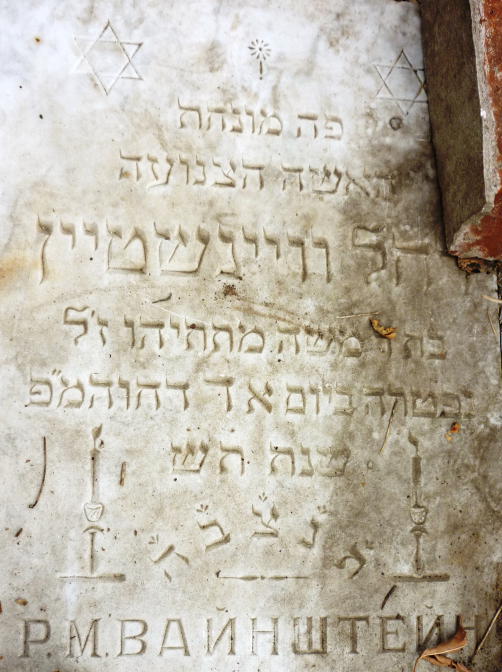 פה מונחת
האשה הצנועה
רחל וויינשטיין
בת ר משה מתתיהו ז״ל
נפטרה ביום א ד דחוהמ״פ
שנת תש
ת נ צ ב ה
Р.М.ВАЙНШТЕЙН